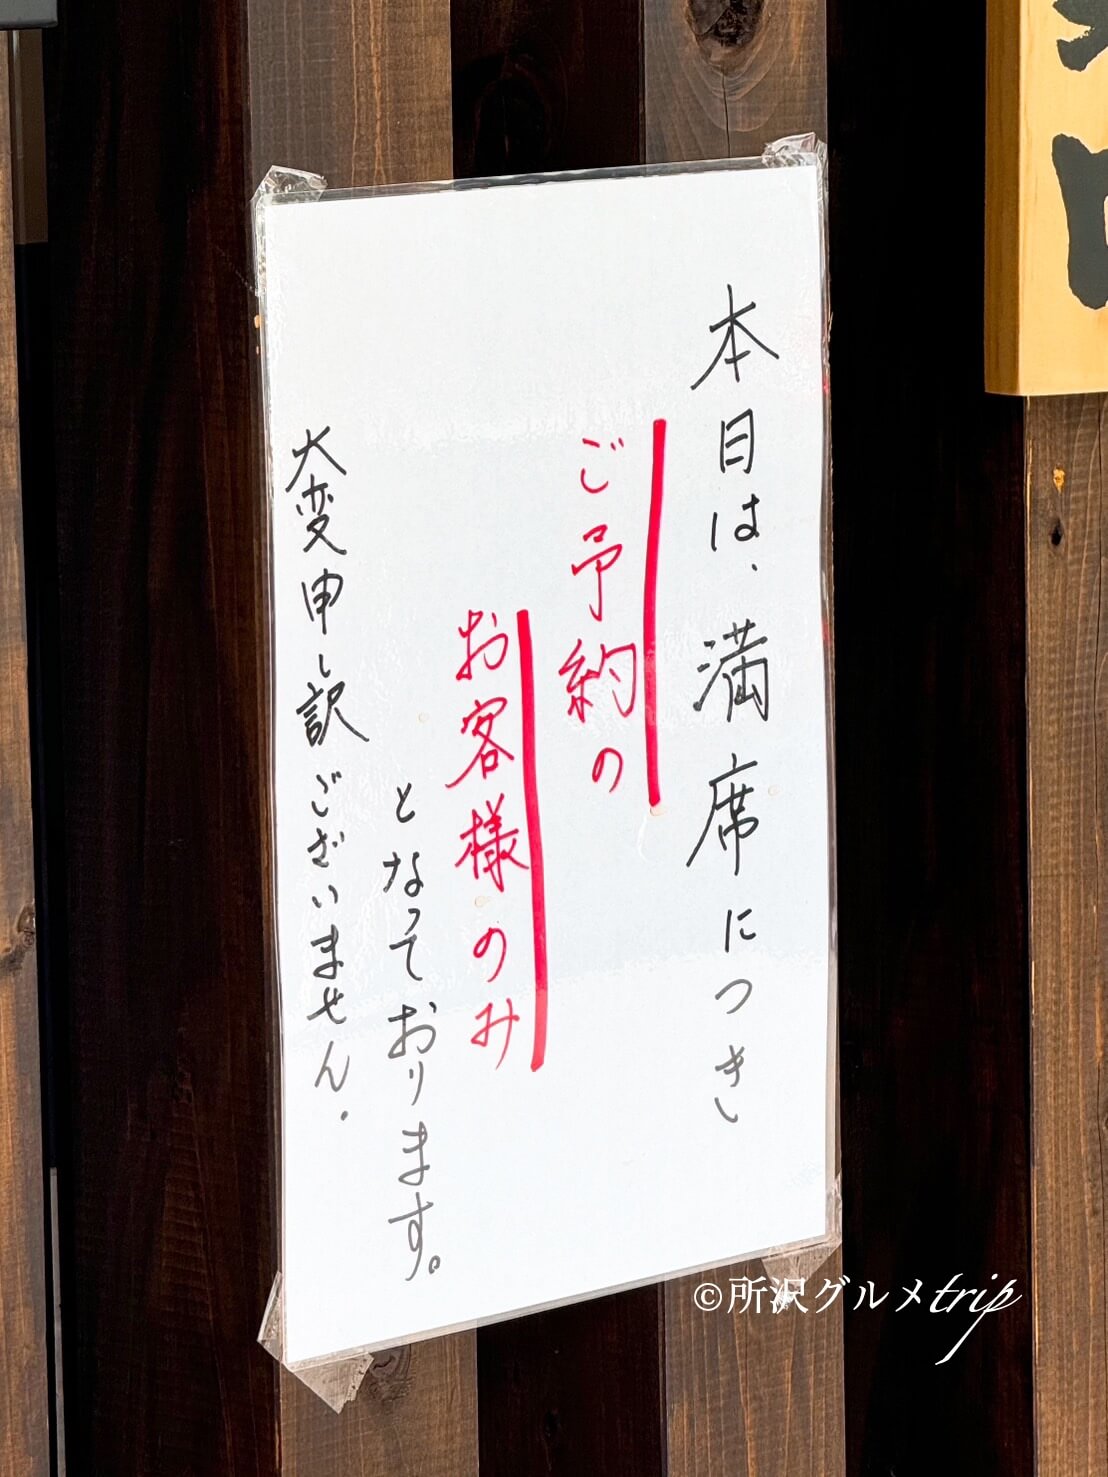 本日は、満席につき
ご予約の
お客様のみ
となっております。
大変申し訳ございません.
©所沢グルメtrip